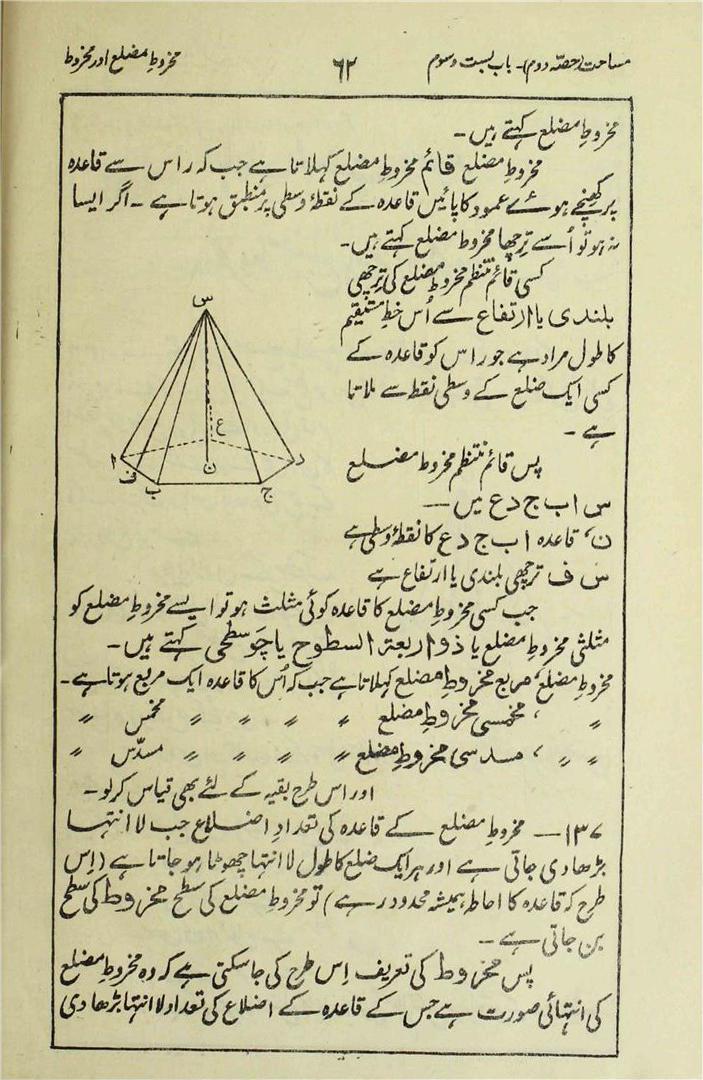 مساحت (حصّہ دوم)۔ باب بست و سوم
۶۲
مخروطِ مضلع اور مخروط
مخروطِ مضلع کہتے ہیں۔
مخروطِ مضلع قائم مخروطِ مضلع کہلاتا ہے جب کہ راس سے قاعدہ
پر کھینچے ہوئے عمود کا پائیں قاعدہ کے نقطۂ وسطی پر منطبق ہوتا ہے۔ اگر ایسا
نہ ہو تو اُسے ترچھا مخروط مضلع کہتے ہیں۔
کسی قائم منتظم مخروطِ مضلع کی ترچھی
بلندی یا ارتفاع سے اُس خطِ مستقیم
کا طول مراد ہے جو راس کو قاعدہ کے
کسی ایک ضلع کے وسطی نقطہ سے ملاتا
ہے۔
پس قائم منتظم مخروط مضلع
س ا ب ج د ع میں —
ن، قاعدہ ا ب ج د ع کا نقطۂ وسطی ہے
س ف ترچھی بلندی یا ارتفاع ہے
س
ع
ا
ف
ن
د
ب
ج
جب کسی مخروطِ مضلع کا قاعدہ کوئی مثلث ہو تو ایسے مخروطِ مضلع کو
مثلثی مخروطِ مضلع یا ذو اربعۃ السطوح یا چَو سطحی کہتے ہیں۔
مخروطِ مضلع، مربع مخروطِ مضلع کہلاتا ہے جب کہ اُس کا قاعدہ ایک مربع ہوتا ہے۔
〃 ، مخمسی مخروطِ مضلع 〃 〃 〃 〃 〃 مخمس 〃
〃 〃 ، مسدسی مخروطِ مضلع 〃 〃 〃 〃 〃 مسدّس 〃
اور اس طرح بقیہ کے لئے بھی قیاس کرلو۔
۱۳۷ — مخروطِ مضلع کے قاعدہ کی تعدادِ اضلاع جب لا انتہا
بڑھا دی جاتی ہے اور ہر ایک ضلع کا طول لا انتہا چھوٹا ہو جاتا ہے (اِس
طرح کہ قاعدہ کا احاطہ ہمیشہ محدود رہے) تو مخروطِ مضلع کی سطح مخروط کی سطح
بن جاتی ہے۔
پس مخروط کی تعریف اِس طرح کی جاسکتی ہے کہ وہ مخروطِ مضلع
کی انتہائی صورت ہے جس کے قاعدہ کے اضلاع کی تعداد لا انتہا بڑھا دی